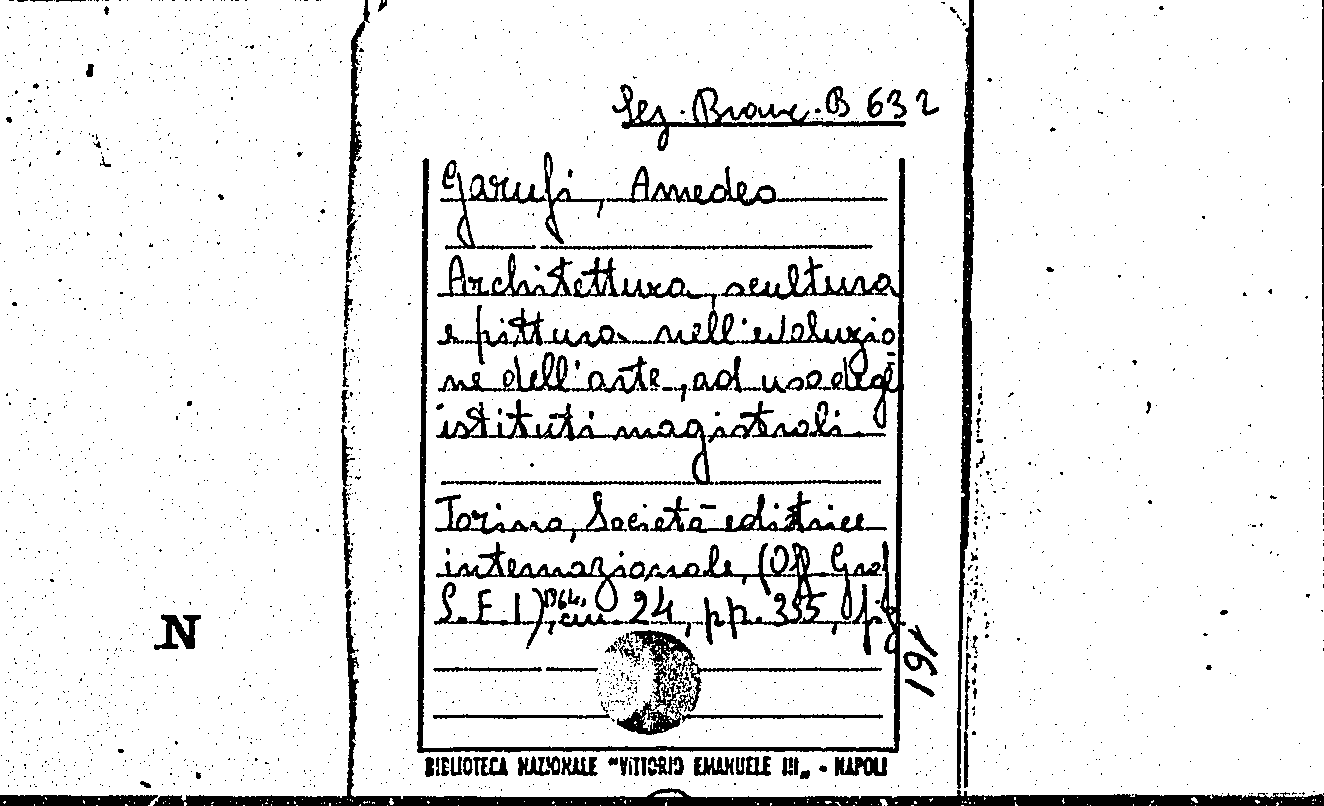 Sez. Branc. B 632
Garufi, Amedeo
Architettura, scultura
e pittura nell'evoluzio
ne dell'arte, ad uso degli
istituti magistrali.
Torino, Società editrice
internazionale, (Off. Graf.
S.E.I), 1964, cm. 24, pp. 355, fig
191
N
BIBLIOTECA NAZIONALE "VITTORIO EMANUELE III„ - NAPOLI